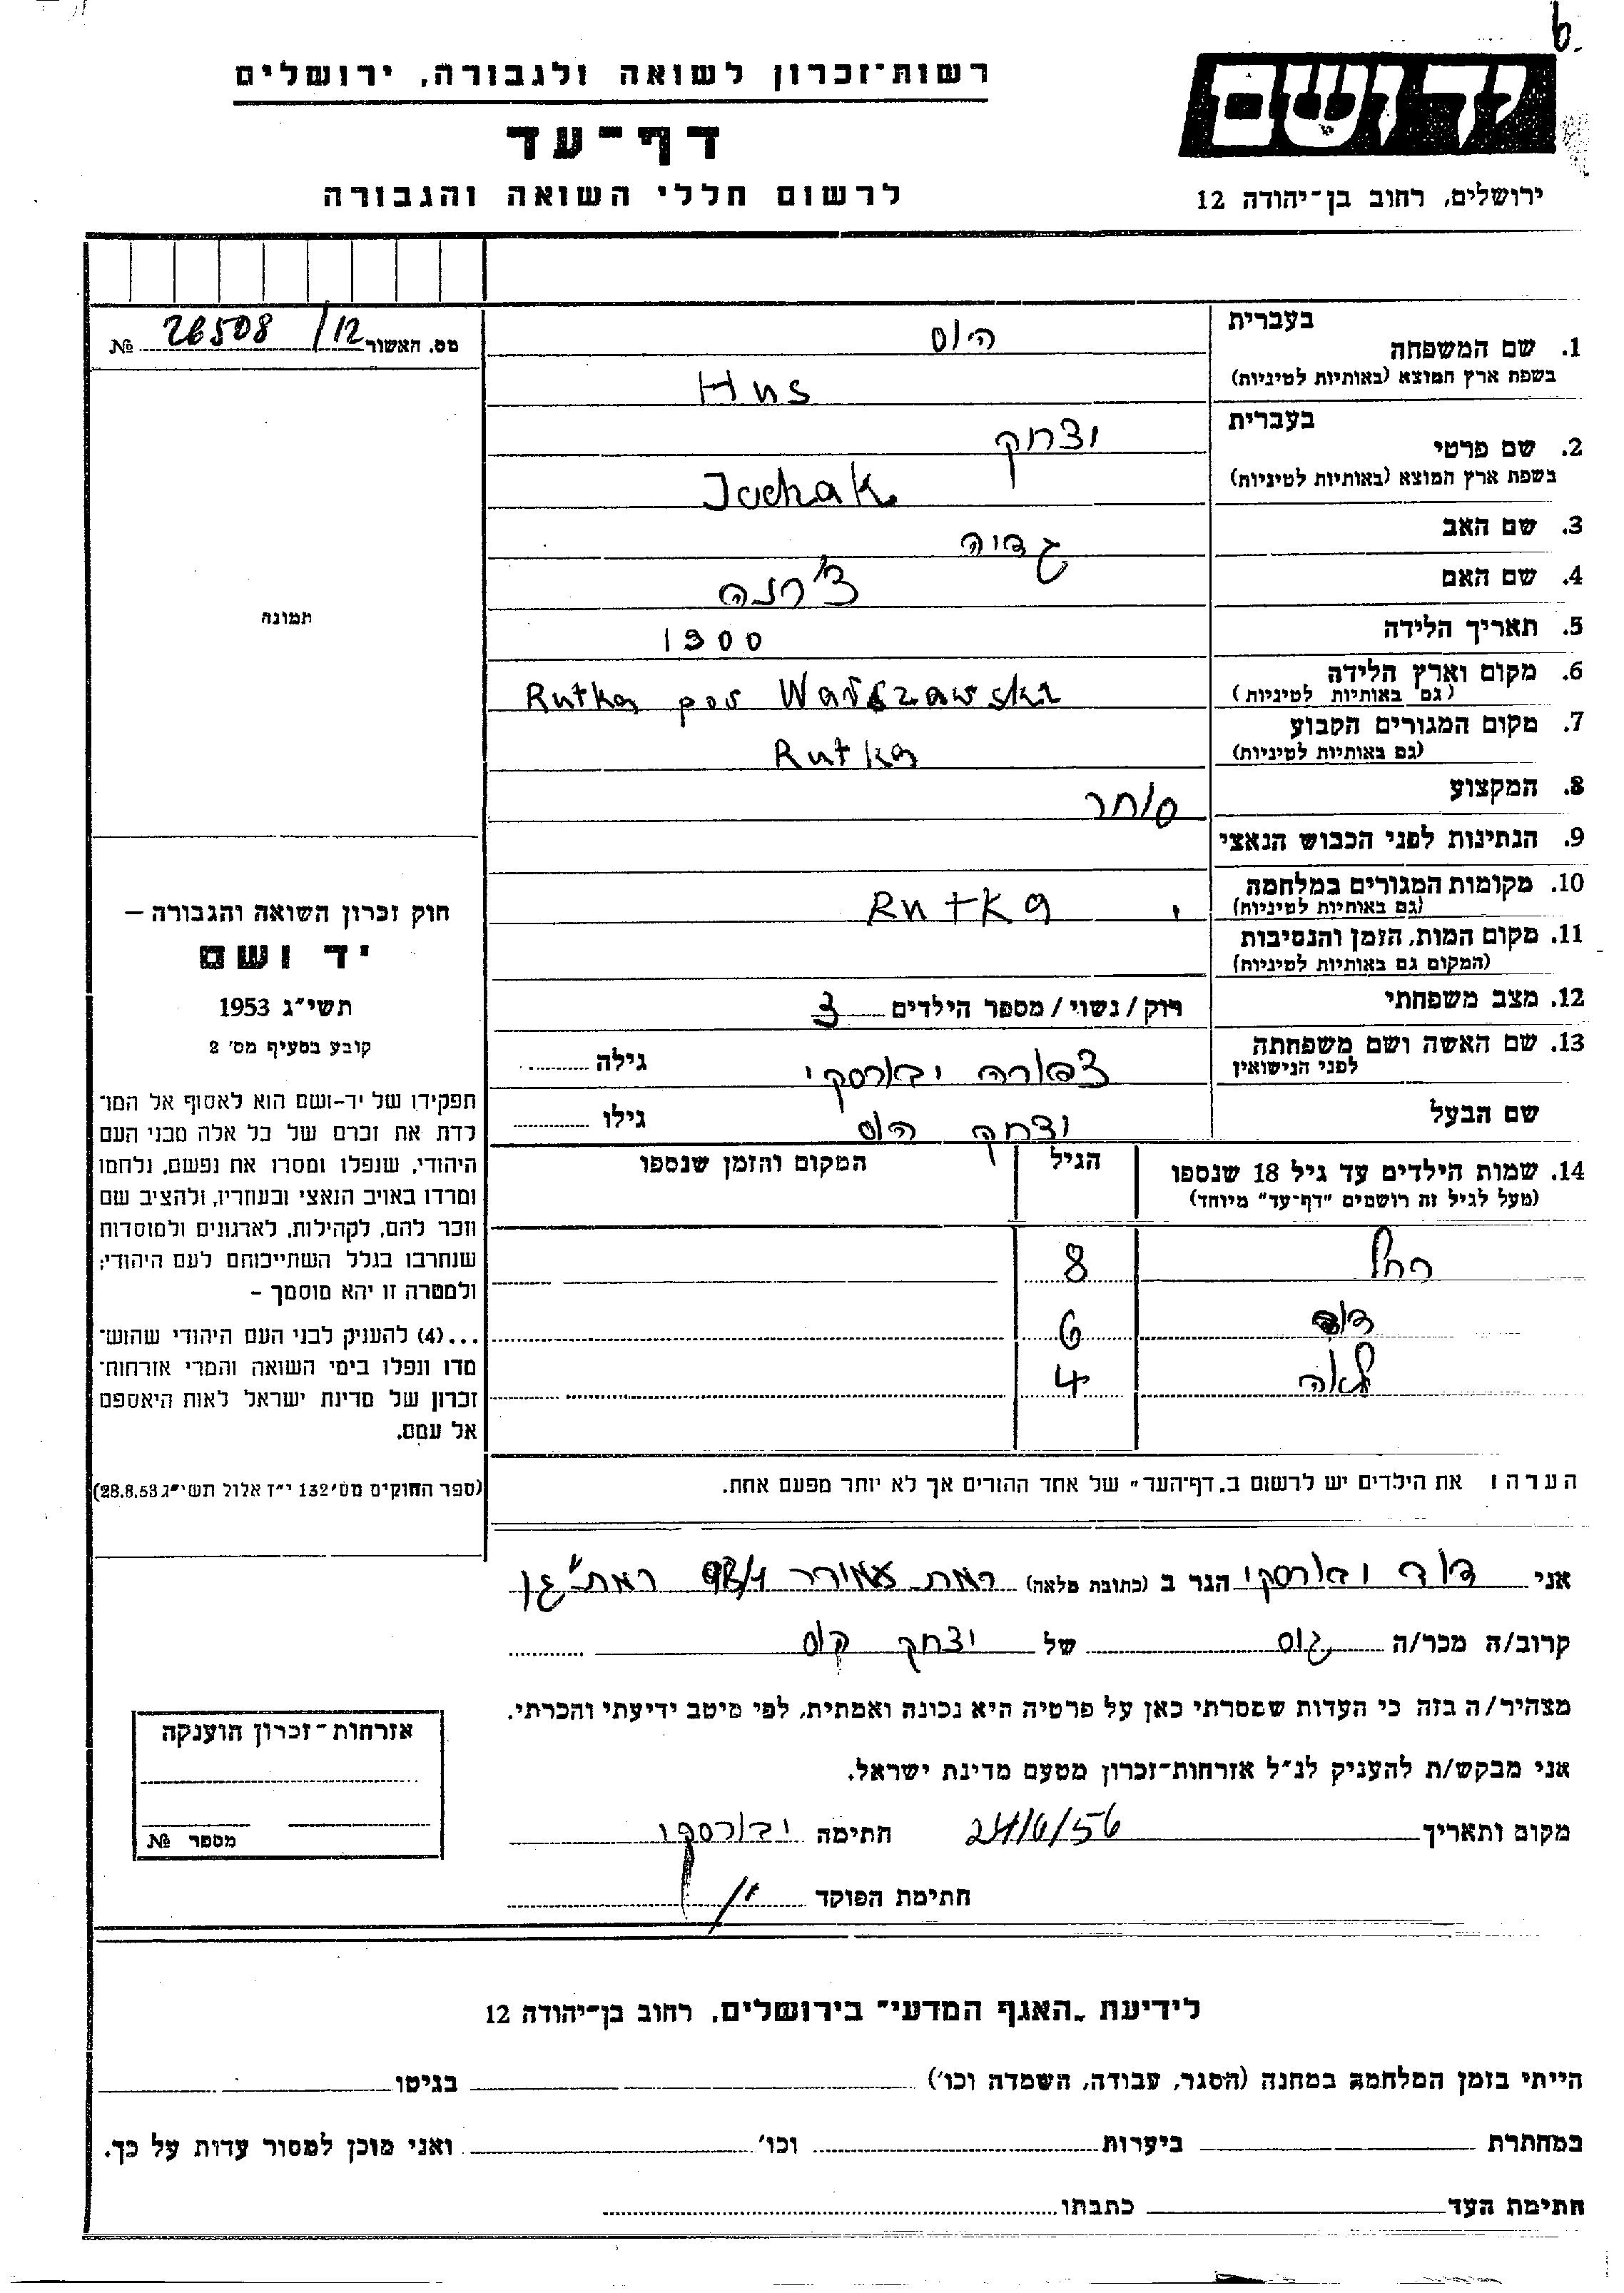 רשות־זכרון לשואה ולגבורה, ירושלים
דף־עד
לרשום חללי השואה והגבורה
יד ושם
ירושלים, רחוב בן־יהודה 12
מס. האשור 26508/12 №
תמונה
חוק זכרון השואה והגבורה –
יד ושם
תשי"ג 1953
קובע בסעיף מס' 2
תפקידו של יד-ושם הוא לאסוף אל המו־
לדת את זכרם של כל אלה מבני העם
היהודי, שנפלו ומסרו את נפשם, נלחמו
ומרדו באויב הנאצי ובעוזריו, ולהציב שם
וזכר להם, לקהילות, לארגונים ולמוסדות
שנחרבו בגלל השתייכותם לעם היהודי;
ולמטרה זו יהא מוסמך –
...(4) להעניק לבני העם היהודי שהוש־
מדו ונפלו בימי השואה והמרי אזרחות־
זכרון של מדינת ישראל לאות היאספם
אל עמם.
(ספר החוקים מס' 132 י"ז אלול תשי"ג 28.8.53)
בעברית הוס
1. שם המשפחה
בשפת ארץ המוצא (באותיות לטיניות) Hus
בעברית יצחק
2. שם פרטי
בשפת ארץ המוצא (באותיות לטיניות) Icchak
3. שם האב
4. שם האם
5. תאריך הלידה 1900
6. מקום וארץ הלידה Rutka pov Warszawski
(גם באותיות לטיניות)
7. מקום המגורים הקבוע Rutka
(גם באותיות לטיניות)
8. המקצוע סוחר
9. הנתינות לפני הכבוש הנאצי
10. מקומות המגורים במלחמה Rutka
(גם באותיות לטיניות)
11. מקום המות, הזמן והנסיבות
(המקום גם באותיות לטיניות)
12. מצב משפחתי רוק / נשוי / מספר הילדים 3
13. שם האשה ושם משפחתה צפורה יבורסקי גילה
לפני הנישואין
שם הבעל יצחק הוס גילו
14. שמות הילדים עד גיל 18 שנספו הגיל המקום והזמן שנספו
(מעל לגיל זה רושמים "דף־עד" מיוחד)
רחל 8
דוד 6
לאה 4
הערה: את הילדים יש לרשום ב„דף־העד" של אחד ההורים אך לא יותר מפעם אחת.
אני דוד יבורסקי הגר ב (כתובת מלאה) רמת עמידר 98/1 רמת גן
קרוב/ה מכר/ה גיס של יצחק הוס
מצהיר/ה בזה כי העדות שמסרתי כאן על פרטיה היא נכונה ואמתית, לפי מיטב ידיעתי והכרתי.
אני מבקש/ת להעניק לנ"ל אזרחות־זכרון מטעם מדינת ישראל.
מקום ותאריך 24/6/56 חתימה יבורסקי
חתימת הפוקד
אזרחות־זכרון הוענקה
מספר №
לידיעת „האגף המדעי" בירושלים, רחוב בן־יהודה 12
הייתי בזמן המלחמה במחנה (הסגר, עבודה, השמדה וכו') בגיטו
במחתרת ביערות וכו' ואני מוכן למסור עדות על כך.
חתימת העד כתבתו